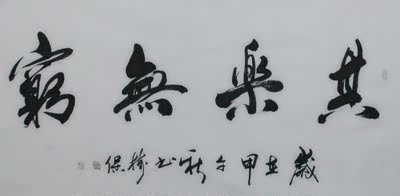 其樂無窮
歲在甲午秋書保